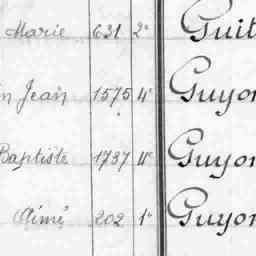 Marie 631 2e Guit
n Jean 1575 4e Guyon
Baptiste 1737 4e Guyon
Aimé 202 1e Guyon